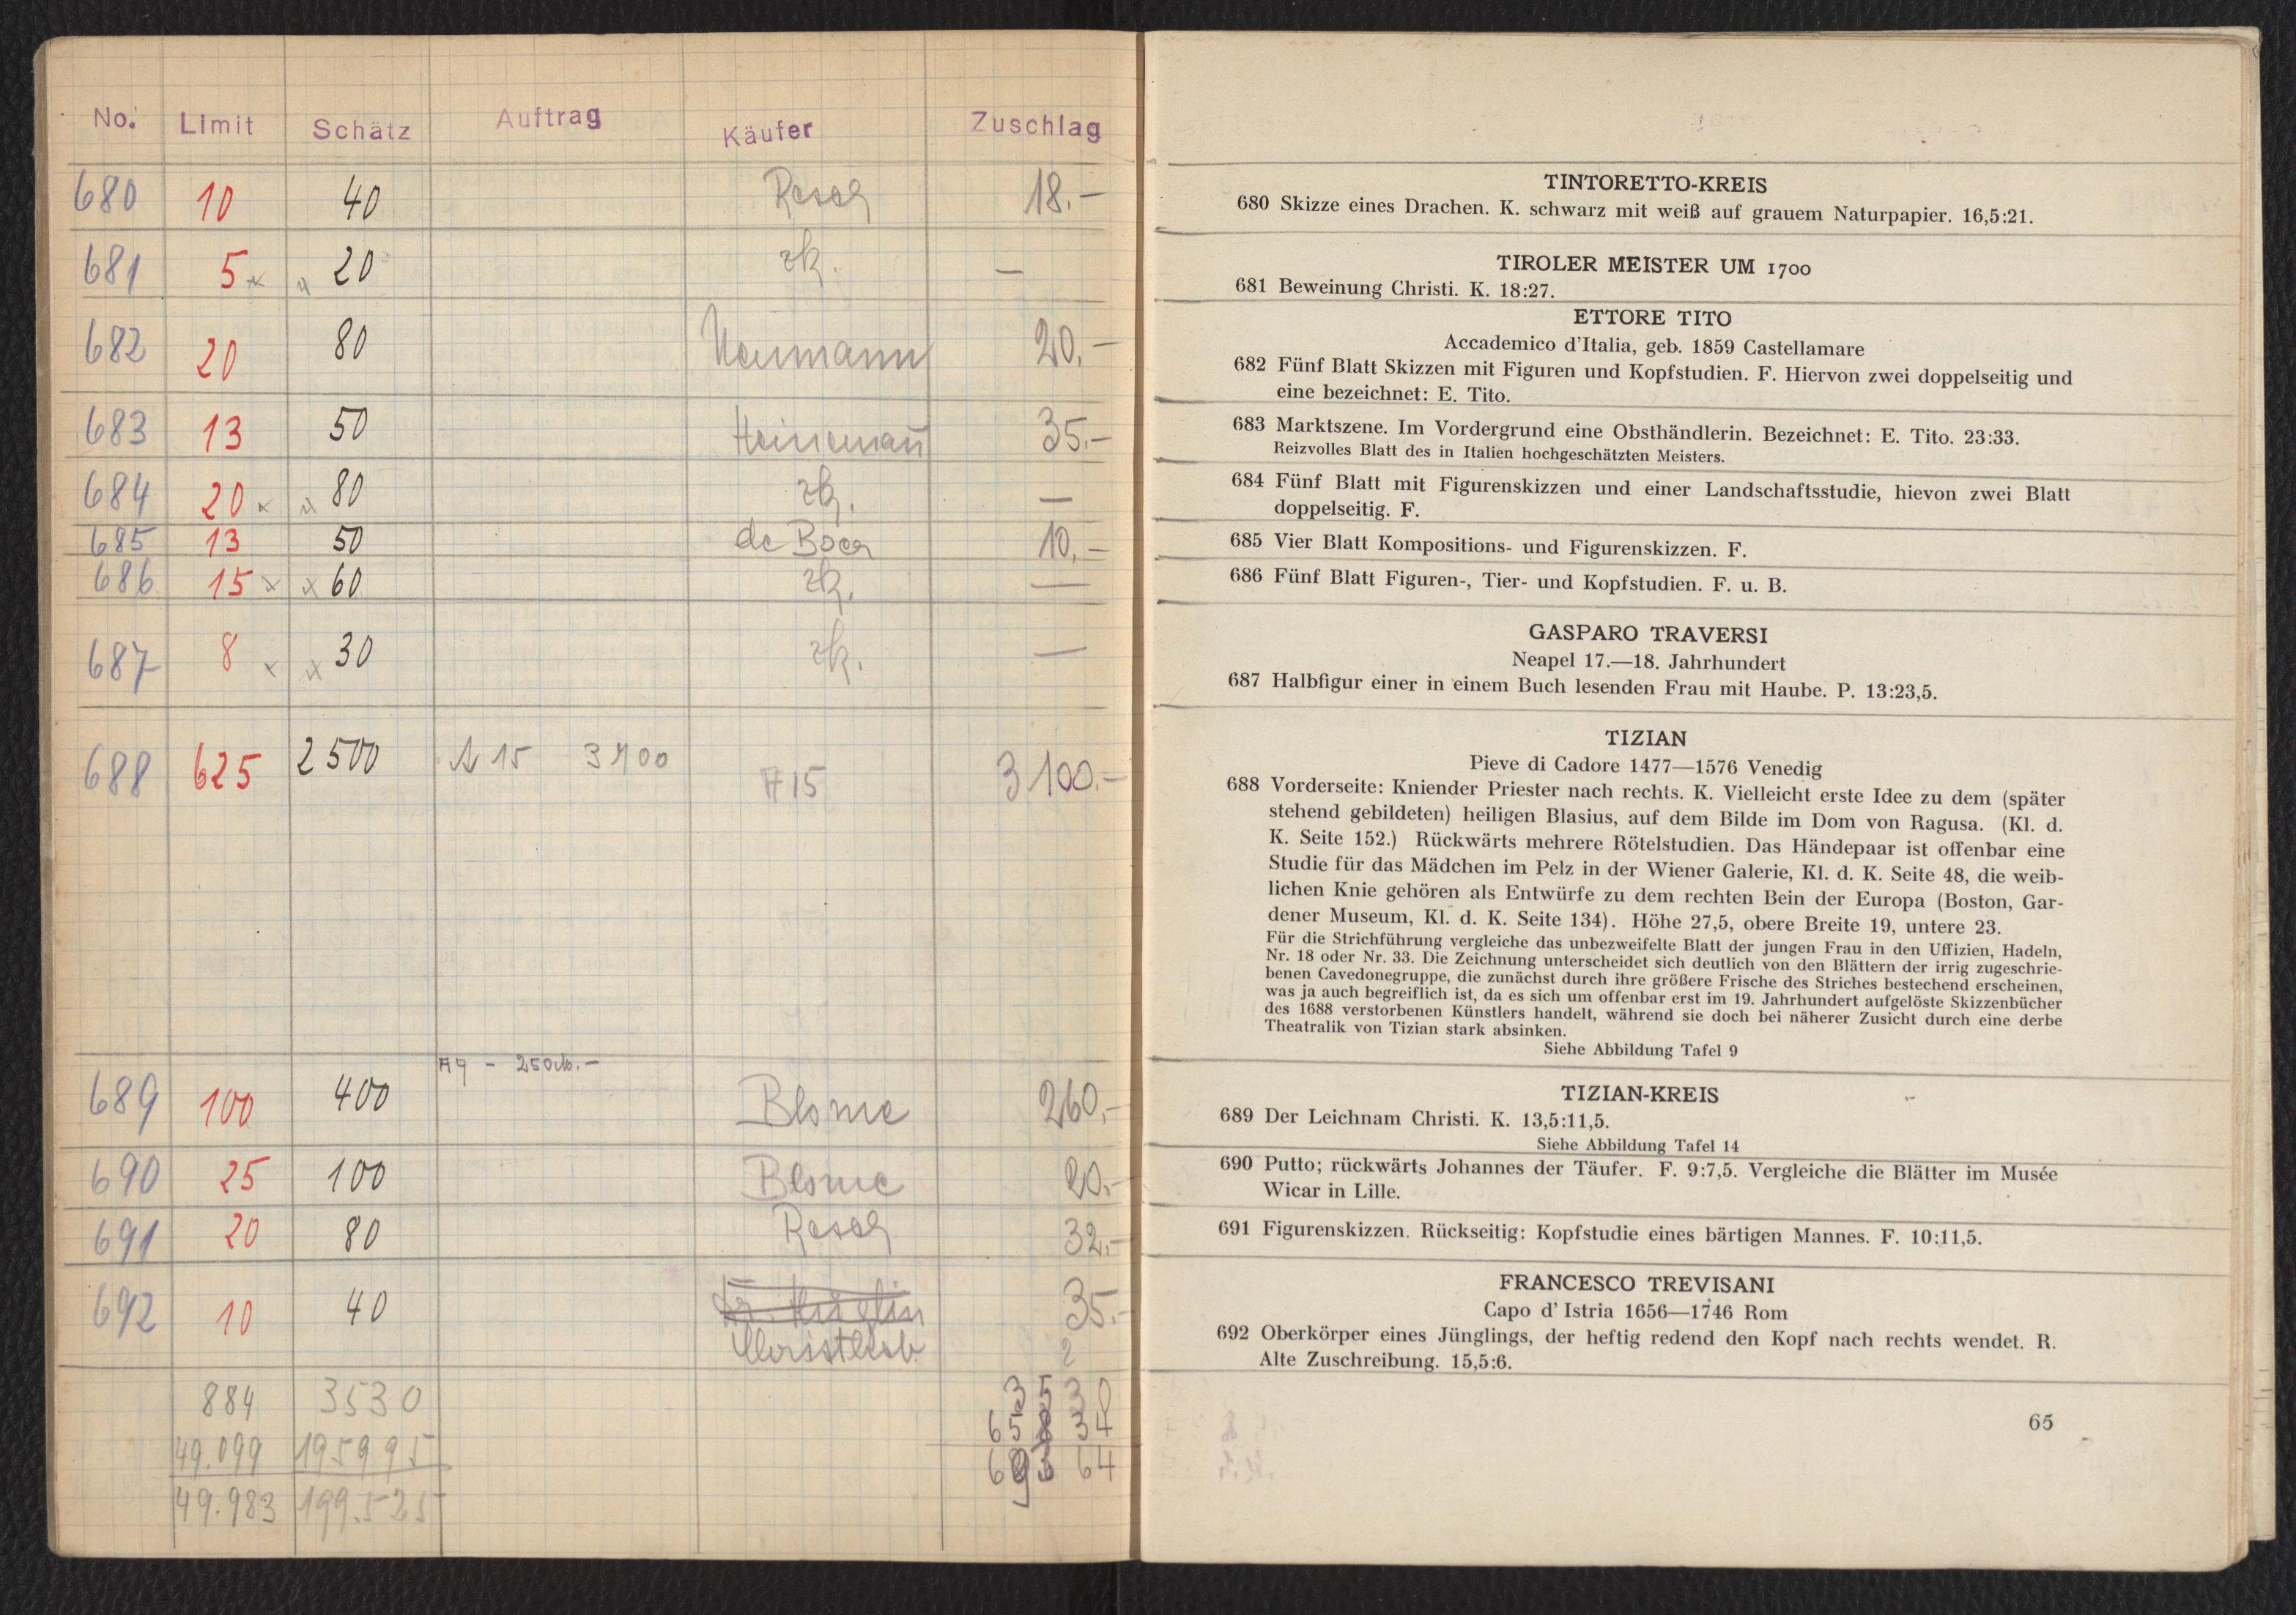 No. Limit Schätz Auftrag Käufer Zuschlag
680 10 40 18.–
681 5 × × 20 zk. —
682 20 80 Neumann 20.–
683 13 50 Heinemañ 35.–
684 20 × × 80 zk. —
685 13 50 de Boer 10.–
686 15 × × 60 zk. —
687 8 × × 30 zk. —
688 625 2500 A 15 3400 A 15 3100.–
A9 – 250 M. –
689 100 400 Blome 260.–
690 25 100 Blome 20.–
691 20 80 32.–
692 10 40 35.–
884 3530 3530
49.099 195995 65834
49.983 199.525 69364
TINTORETTO-KREIS
680 Skizze eines Drachen. K. schwarz mit weiß auf grauem Naturpapier. 16,5:21.
TIROLER MEISTER UM 1700
681 Beweinung Christi. K. 18:27.
ETTORE TITO
Accademico d'Italia, geb. 1859 Castellamare
682 Fünf Blatt Skizzen mit Figuren und Kopfstudien. F. Hiervon zwei doppelseitig und
eine bezeichnet: E. Tito.
683 Marktszene. Im Vordergrund eine Obsthändlerin. Bezeichnet: E. Tito. 23:33.
Reizvolles Blatt des in Italien hochgeschätzten Meisters.
684 Fünf Blatt mit Figurenskizzen und einer Landschaftsstudie, hievon zwei Blatt
doppelseitig. F.
685 Vier Blatt Kompositions- und Figurenskizzen. F.
686 Fünf Blatt Figuren-, Tier- und Kopfstudien. F. u. B.
GASPARO TRAVERSI
Neapel 17.—18. Jahrhundert
687 Halbfigur einer in einem Buch lesenden Frau mit Haube. P. 13:23,5.
TIZIAN
Pieve di Cadore 1477—1576 Venedig
688 Vorderseite: Kniender Priester nach rechts. K. Vielleicht erste Idee zu dem (später
stehend gebildeten) heiligen Blasius, auf dem Bilde im Dom von Ragusa. (Kl. d.
K. Seite 152.) Rückwärts mehrere Rötelstudien. Das Händepaar ist offenbar eine
Studie für das Mädchen im Pelz in der Wiener Galerie, Kl. d. K. Seite 48, die weib-
lichen Knie gehören als Entwürfe zu dem rechten Bein der Europa (Boston, Gar-
dener Museum, Kl. d. K. Seite 134). Höhe 27,5, obere Breite 19, untere 23.
Für die Strichführung vergleiche das unbezweifelte Blatt der jungen Frau in den Uffizien, Hadeln,
Nr. 18 oder Nr. 33. Die Zeichnung unterscheidet sich deutlich von den Blättern der irrig zugeschrie-
benen Cavedonegruppe, die zunächst durch ihre größere Frische des Striches bestechend erscheinen,
was ja auch begreiflich ist, da es sich um offenbar erst im 19. Jahrhundert aufgelöste Skizzenbücher
des 1688 verstorbenen Künstlers handelt, während sie doch bei näherer Zusicht durch eine derbe
Theatralik von Tizian stark absinken.
Siehe Abbildung Tafel 9
TIZIAN-KREIS
689 Der Leichnam Christi. K. 13,5:11,5.
Siehe Abbildung Tafel 14
690 Putto; rückwärts Johannes der Täufer. F. 9:7,5. Vergleiche die Blätter im Musée
Wicar in Lille.
691 Figurenskizzen. Rückseitig: Kopfstudie eines bärtigen Mannes. F. 10:11,5.
FRANCESCO TREVISANI
Capo d' Istria 1656—1746 Rom
692 Oberkörper eines Jünglings, der heftig redend den Kopf nach rechts wendet. R.
Alte Zuschreibung. 15,5:6.
65